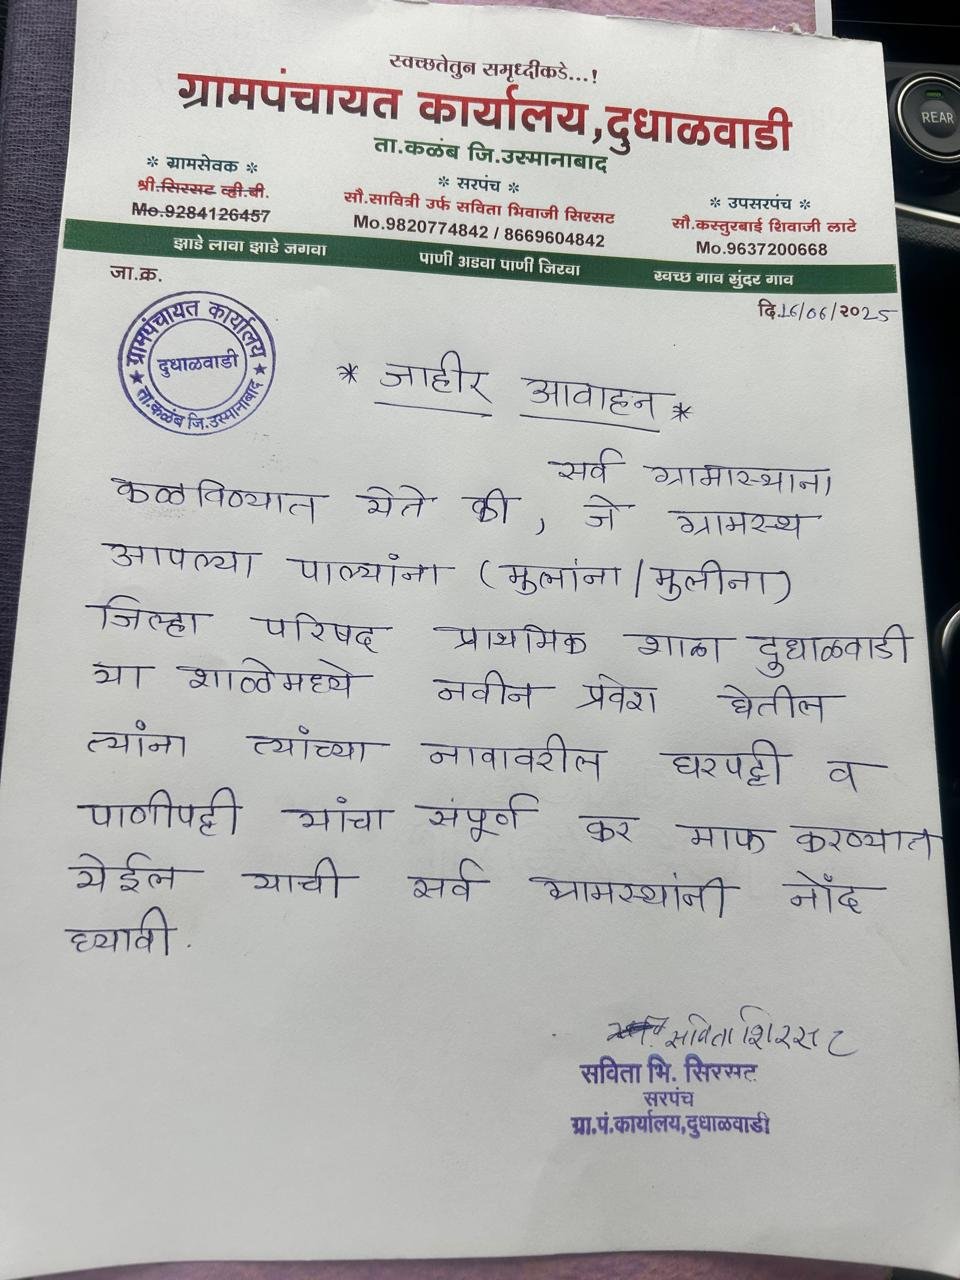 स्वच्छतेतुन समृध्दीकडे...!
ग्रामपंचायत कार्यालय,दुधाळवाडी
ता.कळंब जि.उस्मानाबाद
* ग्रामसेवक *
श्री.सिरसट व्ही.बी.
Mo.9284126457
* सरपंच *
सौ.सावित्री उर्फ सविता भिवाजी सिरसट
Mo.9820774842 / 8669604842
* उपसरपंच *
सौ.कस्तुरबाई शिवाजी लाटे
Mo.9637200668
झाडे लावा झाडे जगवा
पाणी अडवा पाणी जिरवा
स्वच्छ गाव सुंदर गाव
जा.क्र.
दि.16/06/२०25
ग्रामपंचायत कार्यालय
दुधाळवाडी
★ ता.कळंब जि.उस्मानाबाद ★
* जाहीर आवाहन *
सर्व ग्रामास्थाना
कळविण्यात येते की, जे ग्रामस्थ
आपल्या पाल्यांना (मुलांना/मुलीना)
जिल्हा परिषद प्राथमिक शाळा दुधाळवाडी
या शाळेमध्ये नवीन प्रवेश घेतील
त्यांना त्यांच्या नावावरील घरपट्टी व
पाणीपट्टी यांचा संपूर्ण कर माफ करण्यात
येईल याची सर्व ग्रामस्थांनी नोंद
घ्यावी.
सविता शिरसट
सविता भि. सिरसट
सरपंच
ग्रा.पं.कार्यालय,दुधाळवाडी
REAR